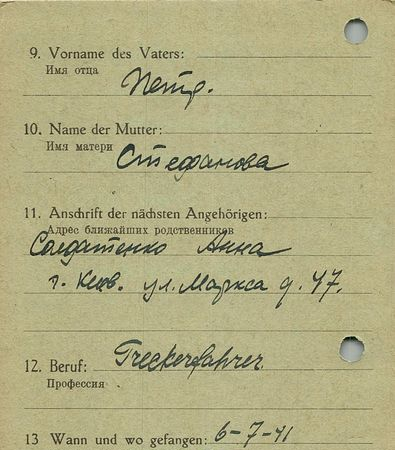 9. Vorname des Vaters:
Имя отца
Петр.
10. Name der Mutter:
Имя матери
Стефанова
11. Anschrift der nächsten Angehörigen:
Адрес ближайших родственников
Солдатенко Анна
г. Киев. ул. Маркса д. 47.
12. Beruf: Treckerfahrer.
Профессия
13 Wann und wo gefangen: 6-7-41